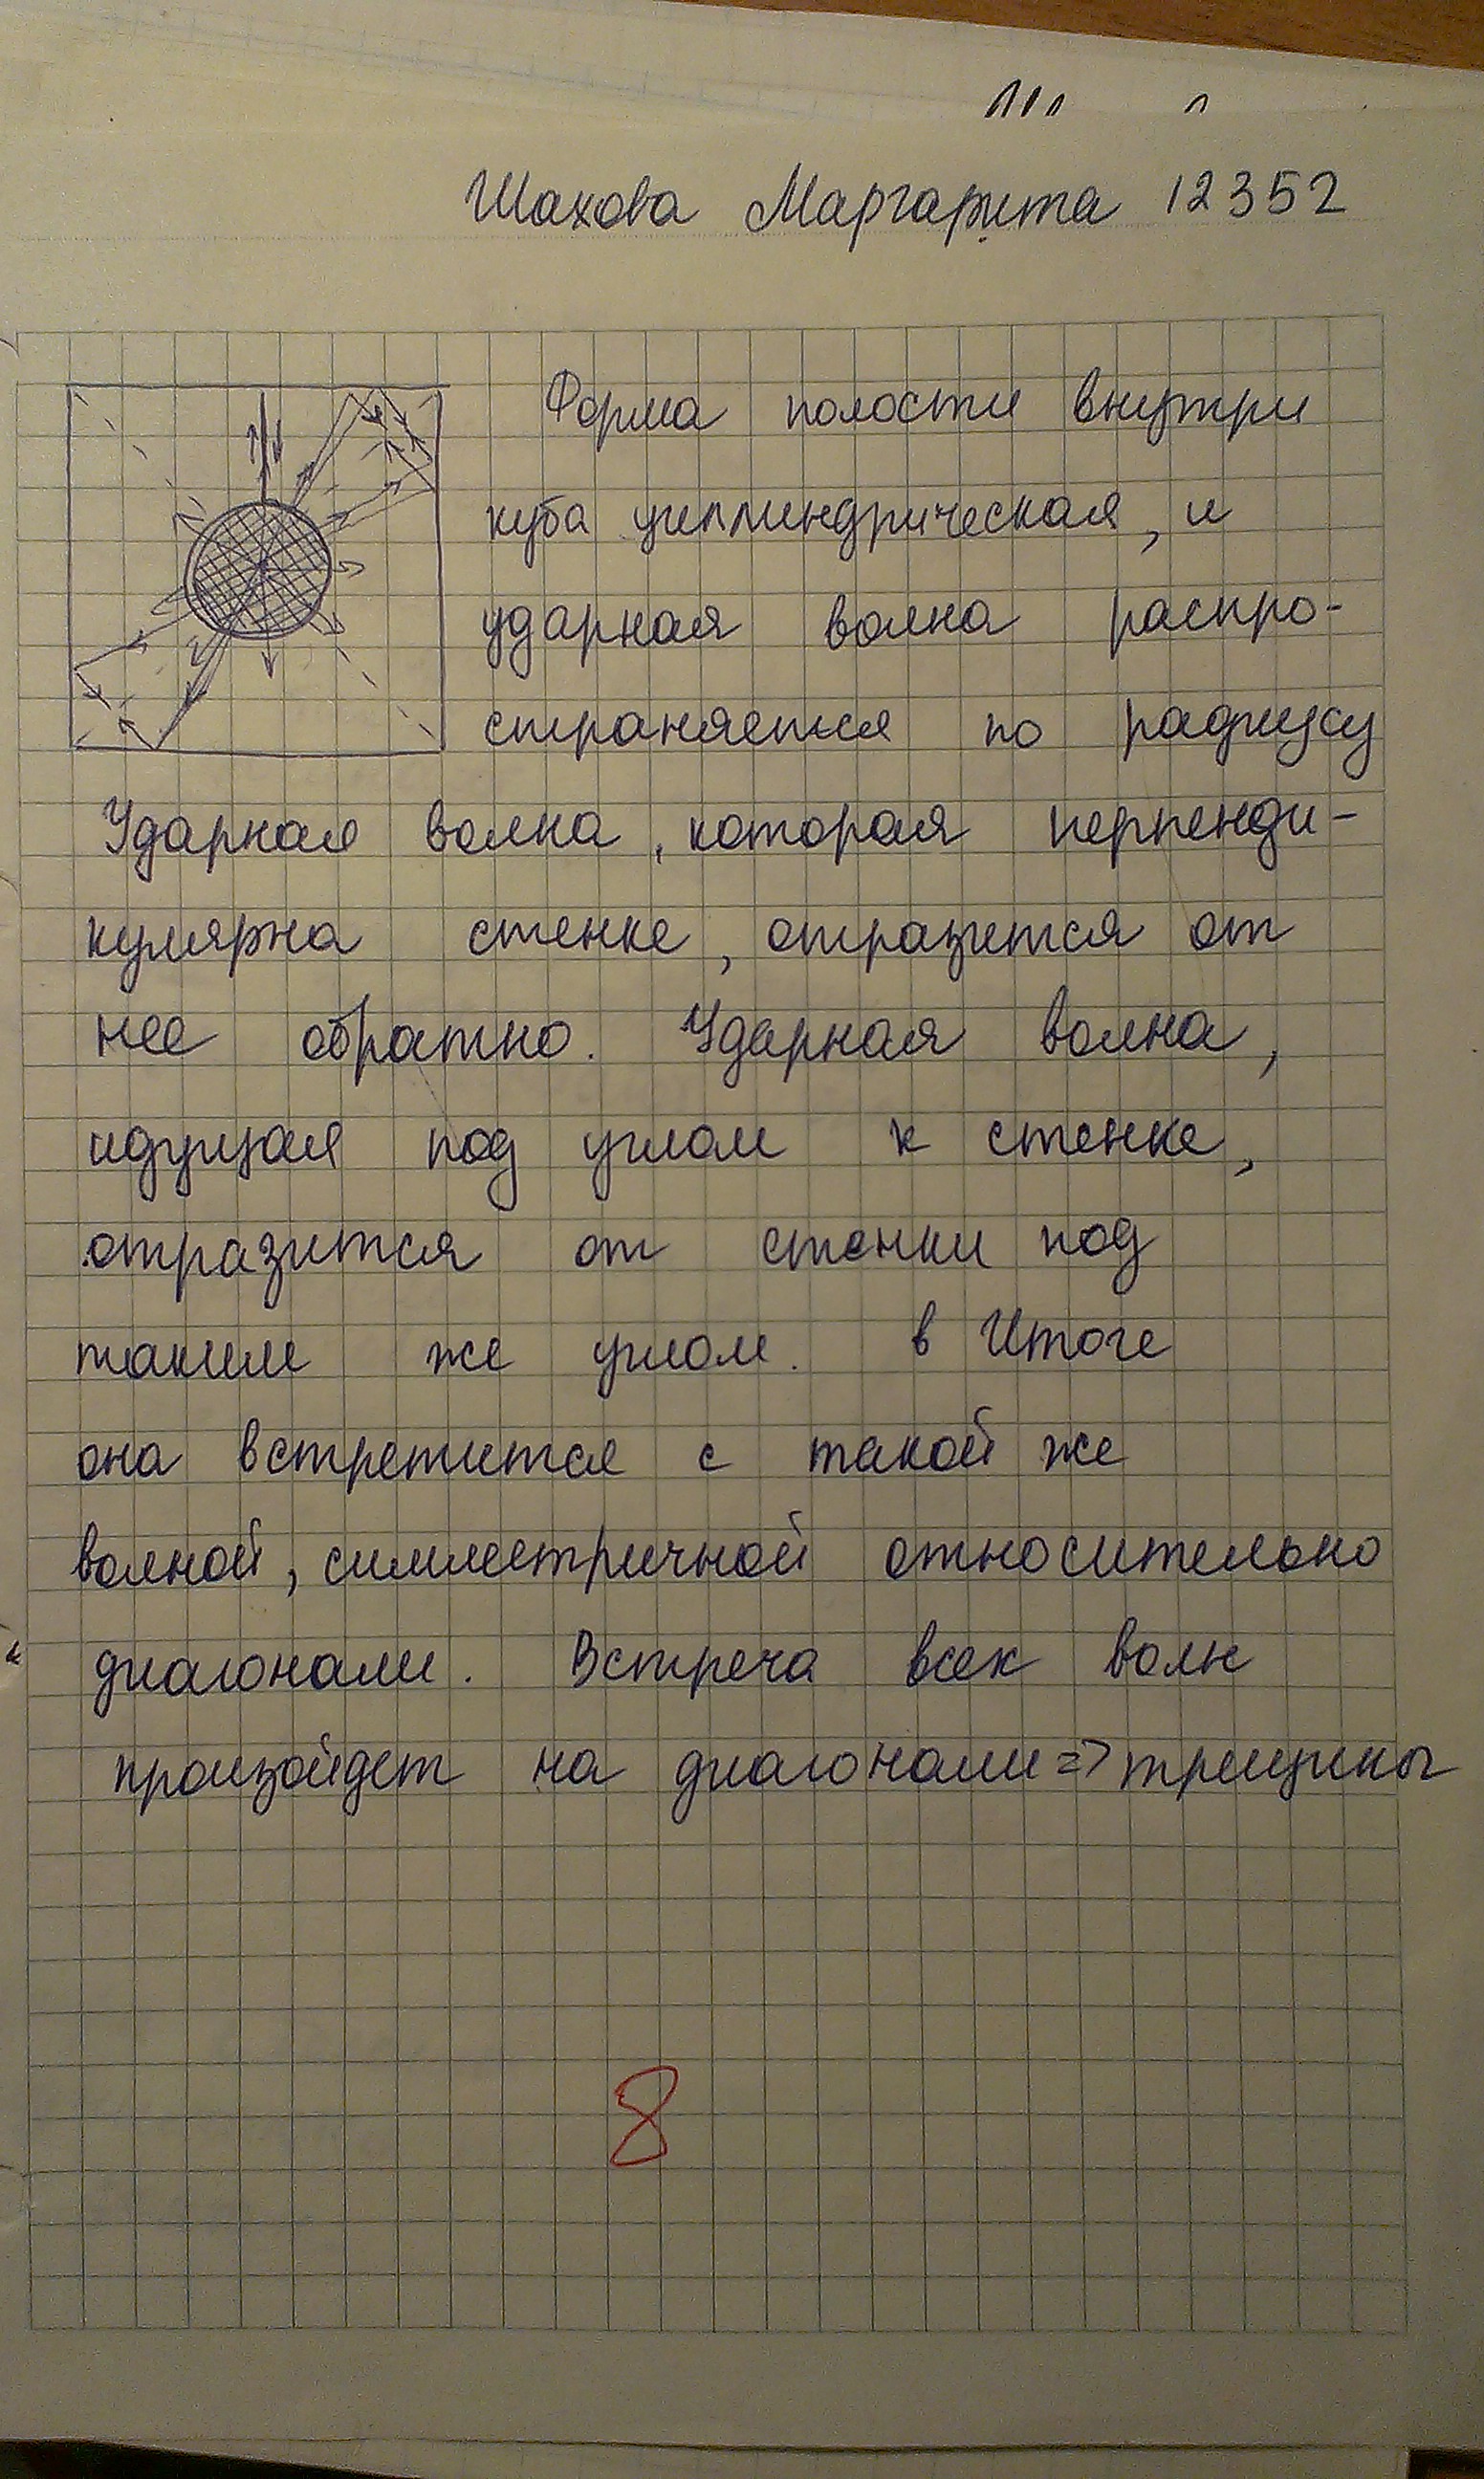 Шахова Маргарита 12352
Форма полости внутри
куба цилиндрическая, и
ударная волна распро-
страняется по радиусу
Ударная волна, которая перпенди-
кулярна стенке, отразится от
нее обратно. Ударная волна,
идущая под углом к стенке,
отразится от стенки под
таким же углом. в Итоге
она встретится с такой же
волной, симметричной относительно
диагонали. Встреча всех волн
произойдет на диагонали => трещины
8